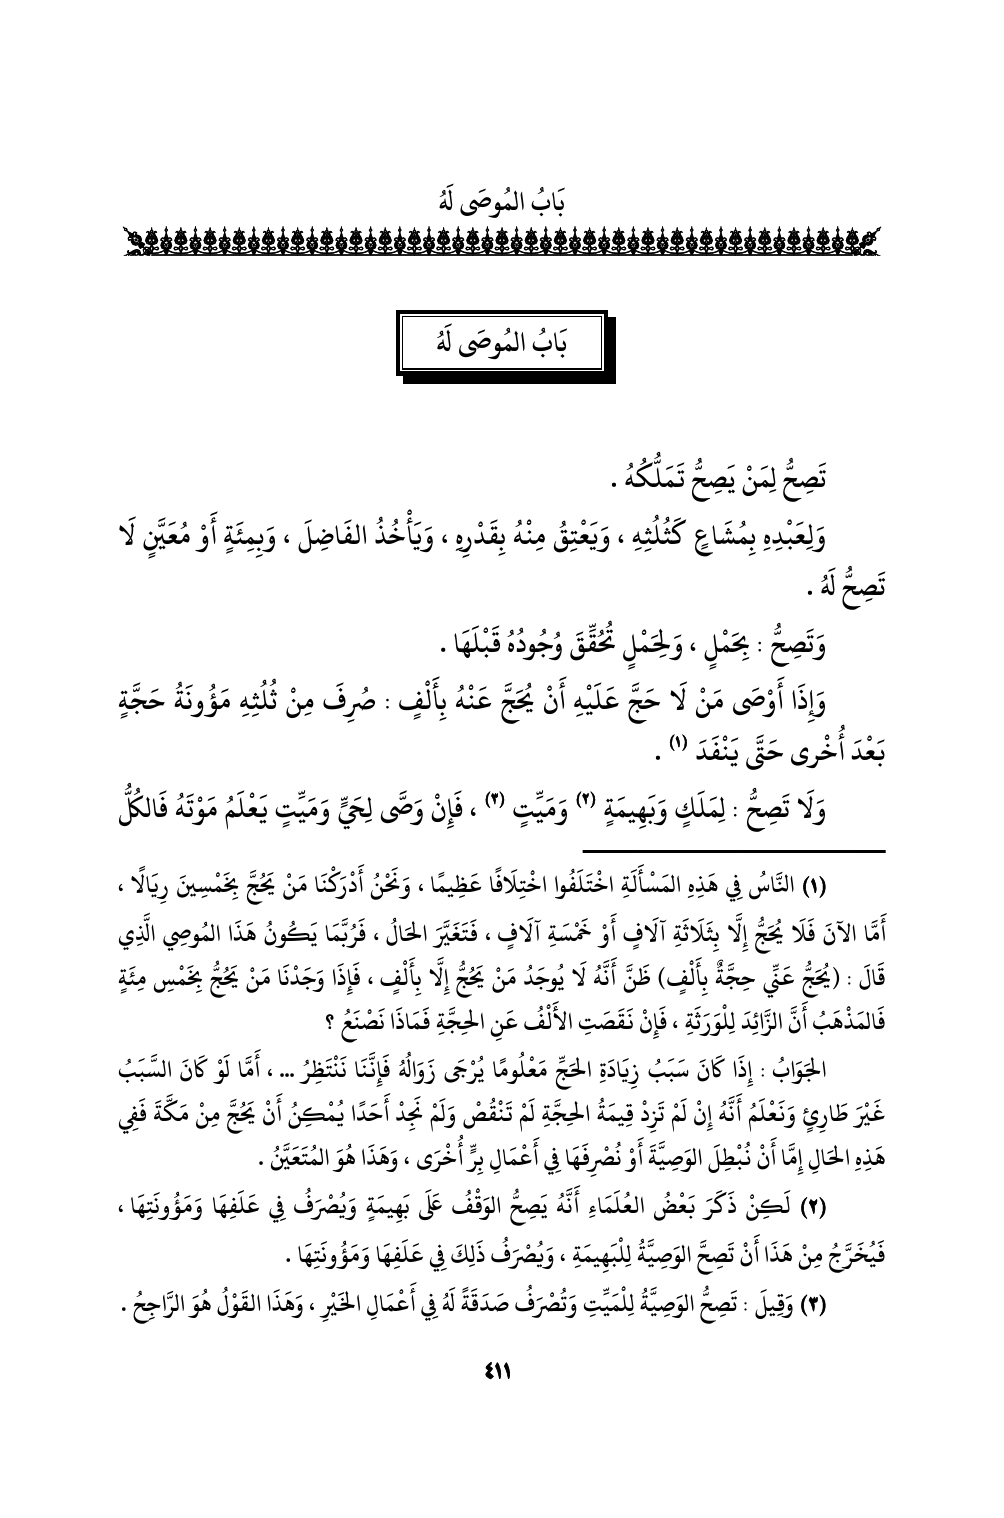 بَابُ المُوصَى لَهُ
بَابُ المُوصَى لَهُ
تَصِحُّ لِمَنْ يَصِحُّ تَمَلُّكُهُ .
وَلِعَبْدِهِ بِمُشَاعٍ كَثُلُثِهِ ، وَيَعْتِقُ مِنْهُ بِقَدْرِهِ ، وَيَأْخُذُ الفَاضِلَ ، وَبِمِئَةٍ أَوْ مُعَيَّنٍ لَا
تَصِحُّ لَهُ .
وَتَصِحُّ : بِحَمْلٍ ، وَلِحَمْلٍ تُحُقِّقَ وُجُودُهُ قَبْلَهَا .
وَإِذَا أَوْصَى مَنْ لَا حَجَّ عَلَيْهِ أَنْ يُحَجَّ عَنْهُ بِأَلْفٍ : صُرِفَ مِنْ ثُلُثِهِ مَؤُونَةُ حَجَّةٍ
بَعْدَ أُخْرى حَتَّى يَنْفَدَ (١) .
وَلَا تَصِحُّ : لِمَلَكٍ وَبَهِيمَةٍ (٢) وَمَيِّتٍ (٣) ، فَإِنْ وَصَّى لِحَيٍّ وَمَيِّتٍ يَعْلَمُ مَوْتَهُ فَالكُلُّ
(١) النَّاسُ فِي هَذِهِ المَسْأَلَةِ اخْتَلَفُوا اخْتِلَافًا عَظِيمًا ، وَنَحْنُ أَدْرَكْنَا مَنْ يَحُجَّ بِخَمْسِينَ رِيَالًا ،
أَمَّا الآنَ فَلَا يُحَجُّ إِلَّا بِثَلَاثَةِ آلَافٍ أَوْ خَمْسَةِ آلَافٍ ، فَتَغَيَّرَ الحَالُ ، فَرُبَّمَا يَكُونُ هَذَا المُوصِي الَّذِي
قَالَ : (يُحَجُّ عَنِّي حِجَّةٌ بِأَلْفٍ) ظَنَّ أَنَّهُ لَا يُوجَدُ مَنْ يَحُجُّ إِلَّا بِأَلْفٍ ، فَإِذَا وَجَدْنَا مَنْ يَحُجُّ بِخَمْسِ مِئَةٍ
فَالمَذْهَبُ أَنَّ الزَّائِدَ لِلْوَرَثَةِ ، فَإِنْ نَقَصَتِ الأَلْفُ عَنِ الحِجَّةِ فَمَاذَا نَصْنَعُ ؟
الجَوَابُ : إِذَا كَانَ سَبَبُ زِيَادَةِ الحَجِّ مَعْلُومًا يُرْجَى زَوَالُهُ فَإِنَّنَا نَنْتَظِرُ ... ، أَمَّا لَوْ كَانَ السَّبَبُ
غَيْرَ طَارِئٍ وَنَعْلَمُ أَنَّهُ إِنْ لَمْ تَزِدْ قِيمَةُ الحِجَّةِ لَمْ تَنْقُصْ وَلَمْ نَجِدْ أَحَدًا يُمْكِنُ أَنْ يَحُجَّ مِنْ مَكَّةَ فَفِي
هَذِهِ الحَالِ إِمَّا أَنْ نُبْطِلَ الوَصِيَّةَ أَوْ نُصْرِفَهَا فِي أَعْمَالِ بِرٍّ أُخْرَى ، وَهَذَا هُوَ المُتَعَيَّنُ .
(٢) لَكِنْ ذَكَرَ بَعْضُ العُلَمَاءِ أَنَّهُ يَصِحُّ الوَقْفُ عَلَى بَهِيمَةٍ وَيُصْرَفُ فِي عَلَفِهَا وَمَؤُونَتِهَا ،
فَيُخَرَّجُ مِنْ هَذَا أَنْ تَصِحَّ الوَصِيَّةُ لِلْبَهِيمَةِ ، وَيُصْرَفُ ذَلِكَ فِي عَلَفِهَا وَمَؤُونَتِهَا .
(٣) وَقِيلَ : تَصِحُّ الوَصِيَّةُ لِلْمَيِّتِ وَتُصْرَفُ صَدَقَةً لَهُ فِي أَعْمَالِ الخَيْرِ ، وَهَذَا القَوْلُ هُوَ الرَّاجِحُ .
٤١١